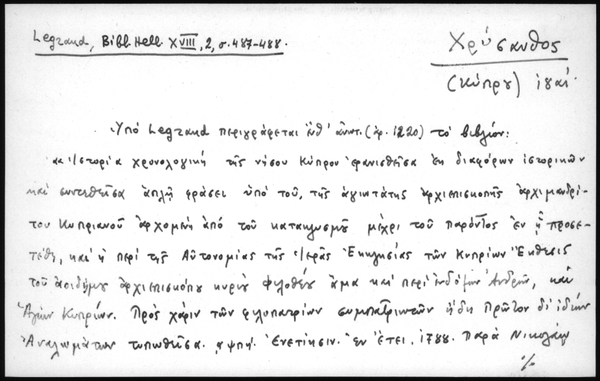 Legrand, Bibl. Hell. XVIII, 2, σ. 487-488.
Χρύσανθος
(Κύπρου)
Ὑπὸ Legrand περιγράφεται (ἀρ. 1220) τὸ βιβλίον:
« Ἱστορία χρονολογικὴ τῆς νήσου Κύπρου ἐρανισθεῖσα ἐκ διαφόρων ἱστορικῶν
καὶ συντεθεῖσα ἁπλῇ φράσει ὑπὸ τοῦ, τῆς ἁγιωτάτης ἀρχιεπισκοπῆς ἀρχιμανδρί-
του Κυπριανοῦ ἀρχομένη ἀπὸ τοῦ κατακλυσμοῦ μέχρι τοῦ παρόντος ἐν ᾗ προσε-
τέθη, καὶ ἡ περὶ τῆς Αὐτονομίας τῆς Ἱερᾶς Ἐκκλησίας τῶν Κυπρίων Ἔκθεσις
τοῦ ἀοιδίμου ἀρχιεπισκόπου κυροῦ Φιλοθέου ἅμα καὶ περὶ ἐνδόξων Ἀνδρῶν, καὶ
Ἁγίων Κυπρίων. Πρὸς χάριν τῶν φιλοπατρίων συμπατριωτῶν ἤδη Πρῶτον δι' ἰδίων
Ἀναλωμάτων τυπωθεῖσα. αψπη'. Ἐνετίησιν. Ἐν ἔτει. 1788. Παρὰ Νικολάῳ
%